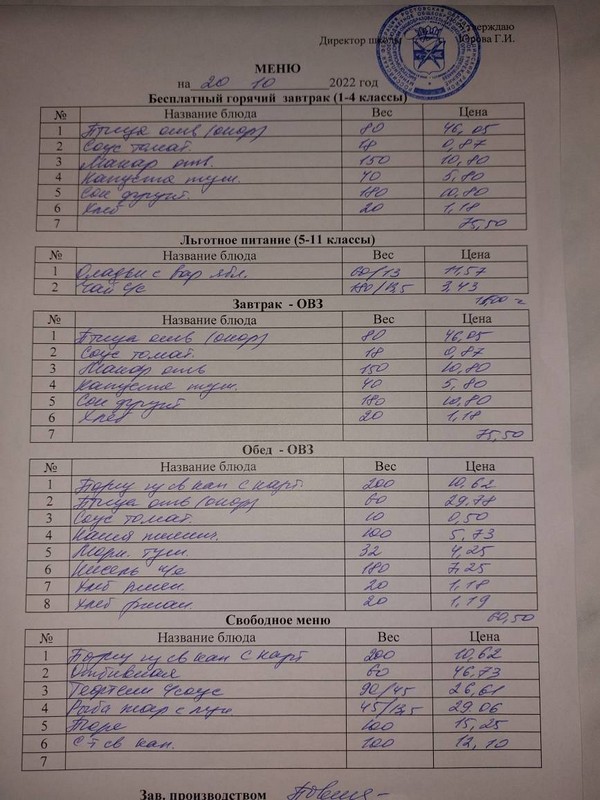 Утверждаю
Директор школы Юрова Г.И.
МЕНЮ
на 20 10 2022 год
Бесплатный горячий завтрак (1-4 классы)
№ Название блюда Вес Цена
1 Птица отв (окор) 80 46,05
2 Соус томат. 18 0,87
3 Макар отв. 150 10,80
4 Капуста туш. 40 5,80
5 Сок фрукт. 180 10,80
6 Хлеб 20 1,18
7 75,50
Льготное питание (5-11 классы)
№ Название блюда Вес Цена
1 Оладьи с вар ябл. 60/13 11,57
2 Чай с/с 180/13,5 2,43
Завтрак - ОВЗ
№ Название блюда Вес Цена
1 Птица отв (окор) 80 46,05
2 Соус томат. 18 0,87
3 Макар отв 150 10,80
4 Капуста туш. 40 5,80
5 Сок фрукт 180 10,80
6 Хлеб 20 1,18
7 75,50
Обед - ОВЗ
№ Название блюда Вес Цена
1 Борщ из св кап с карт. 200 10,62
2 Птица отв (окор) 60 29,78
3 Соус томат. 10 0,50
4 Каша 100 5,73
5 Морк. туш. 32 4,25
6 Кисель 180 7,25
7 Хлеб пшен. 20 1,18
8 Хлеб ржан. 20 1,19
60,50
Свободное меню
№ Название блюда Вес Цена
1 Борщ из св кап с карт 200 10,62
2 Отбивная 60 46,73
3 Тефтели соус 90/45 26,61
4 Рыба жар с лук 45/13,5 29,06
5 Пюре 100 15,25
6 С-т св кап. 100 12,10
7
Зав. производством